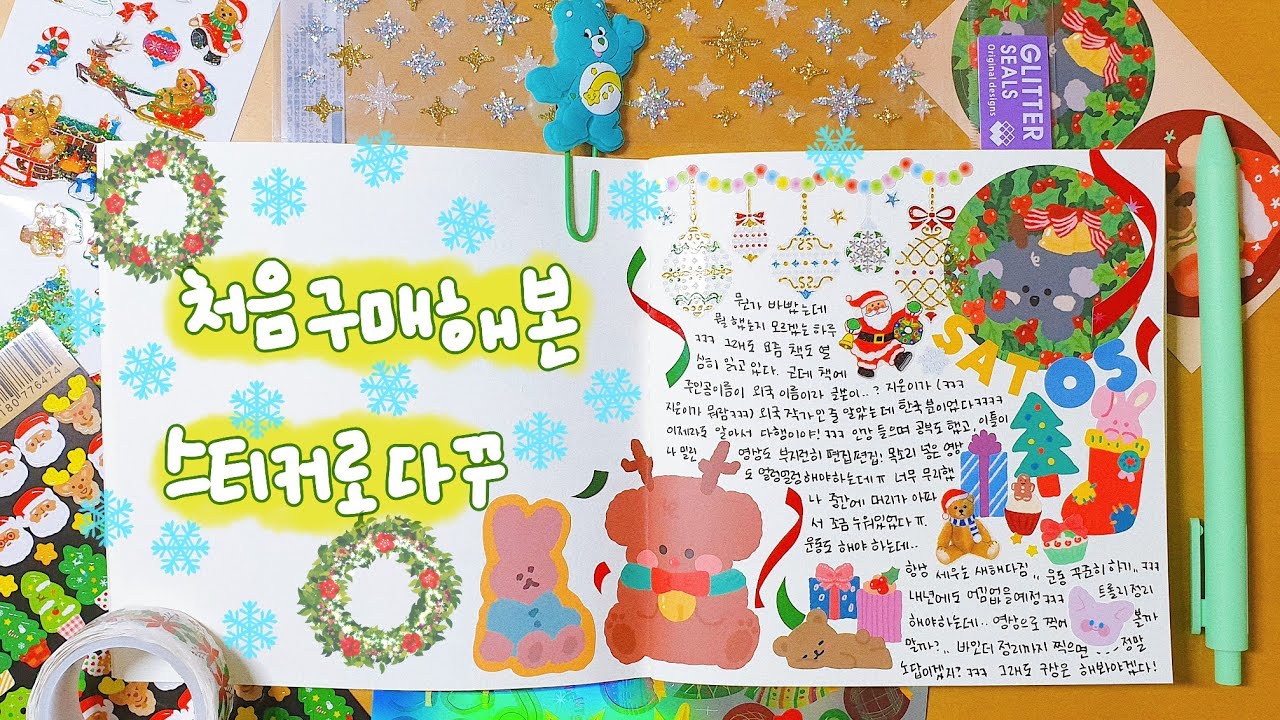 GLITTER
SEALS
Original designs
처음 구매해 본
스티커로 다꾸
SATOS
뭔가 바빴는데
뭘 했는지 모르겠는 하루
ㅋㅋㅋ 그래도 요즘 책도 열
심히 읽고 있다. 근데 책에
주인공이름이 외국 이름이라 글쓴이..? 지은이가 (ㅋㅋㅋ
지은이가 뭐람ㅋㅋㅋ) 외국 작가인 줄 알았는데 한국 분이었다ㅋㅋㅋㅋ
이제라도 알아서 다행이야! ㅋㅋㅋ 인강 들으며 공부도 했고, 이틀이
나 밀린 영상도 부지런히 편집편집. 목소리 넣은 영상
도 얼렁뚱땅 해야하는데ㅠ 너무 무리했
나 중간에 머리가 아파
서 조금 누워있었다 ㅠ.
운동도 해야 하는데..
항상 세우는 새해다짐,, 운동 꾸준히 하기,, ㅋㅋㅋ
내년에도 어김없을예정 ㅋㅋㅋ 트롤리정리
해야하는데.. 영상으로 찍어 볼까
말까?,, 바인더 정리까지 찍으면 정말
노답이겠지? ㅋㅋㅋ 그래도 구상은 해봐야겠다!